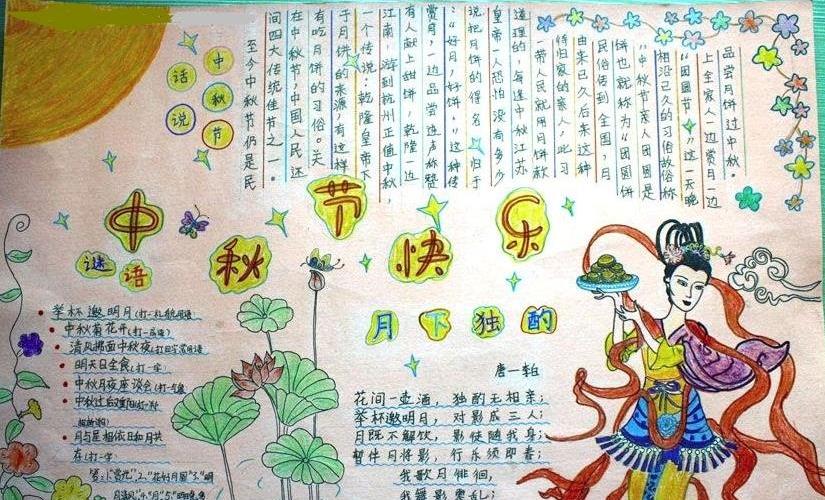 话说
中秋节
至今中秋节仍是民
间四大传统佳节之一。
在中秋节,中国人民还
有吃月饼的习俗。关
于月饼的来源,有这样
一个传说:乾隆皇帝下
江南,游到杭州正值中秋
有人献上甜饼,乾隆一边
赏月,一边品尝连声称赞
:“好月,好饼。”这种传
说把月饼的得名,归于
皇帝一人恐怕没有多少
道理的,每逢中秋江苏
带人民就用月饼款
待归家的亲人,此习
由来已久后来这种
民俗传到全国,月
饼也就称为“团圆饼
“中秋节亲人团圆是
相沿已久的习俗故俗称
“团圆节”这一天晚
上全家人一边赏月一边
品尝月饼过中秋。
中秋节快乐
谜语
举杯邀明月(打一礼貌用语
中秋菊花开(打一成语)
清风拂面中秋夜(打曰常用语
明天日全食(打一字)
中秋月夜座谈会(打一
中秋过后
月与星相依日和月共
存(打一字
月下独酌
唐一李白
花间一壶酒,独酌无相亲;
举杯邀明月,对影成三人;
月既不解饮,影徒随我身;
暂伴月将影,行乐须即春;
我歌月徘徊,
我舞影零乱;